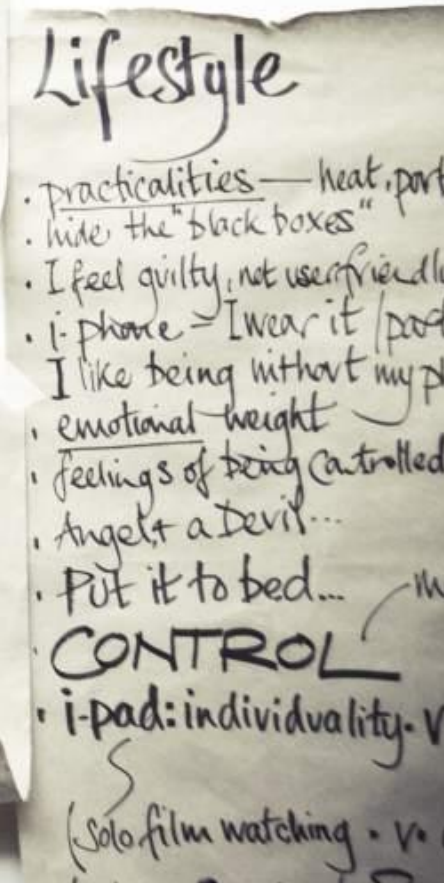 Lifestyle
· practicalities — heat, port
· hide the "black boxes"
· I feel guilty, not userfriendly
· i-phone – I wear it /
I like being without my
· emotional weight
· feelings of being controlled
· Angel + a Devil...
· Put it to bed...
· CONTROL
· i-pad: individuality. v
(solo film watching · v.